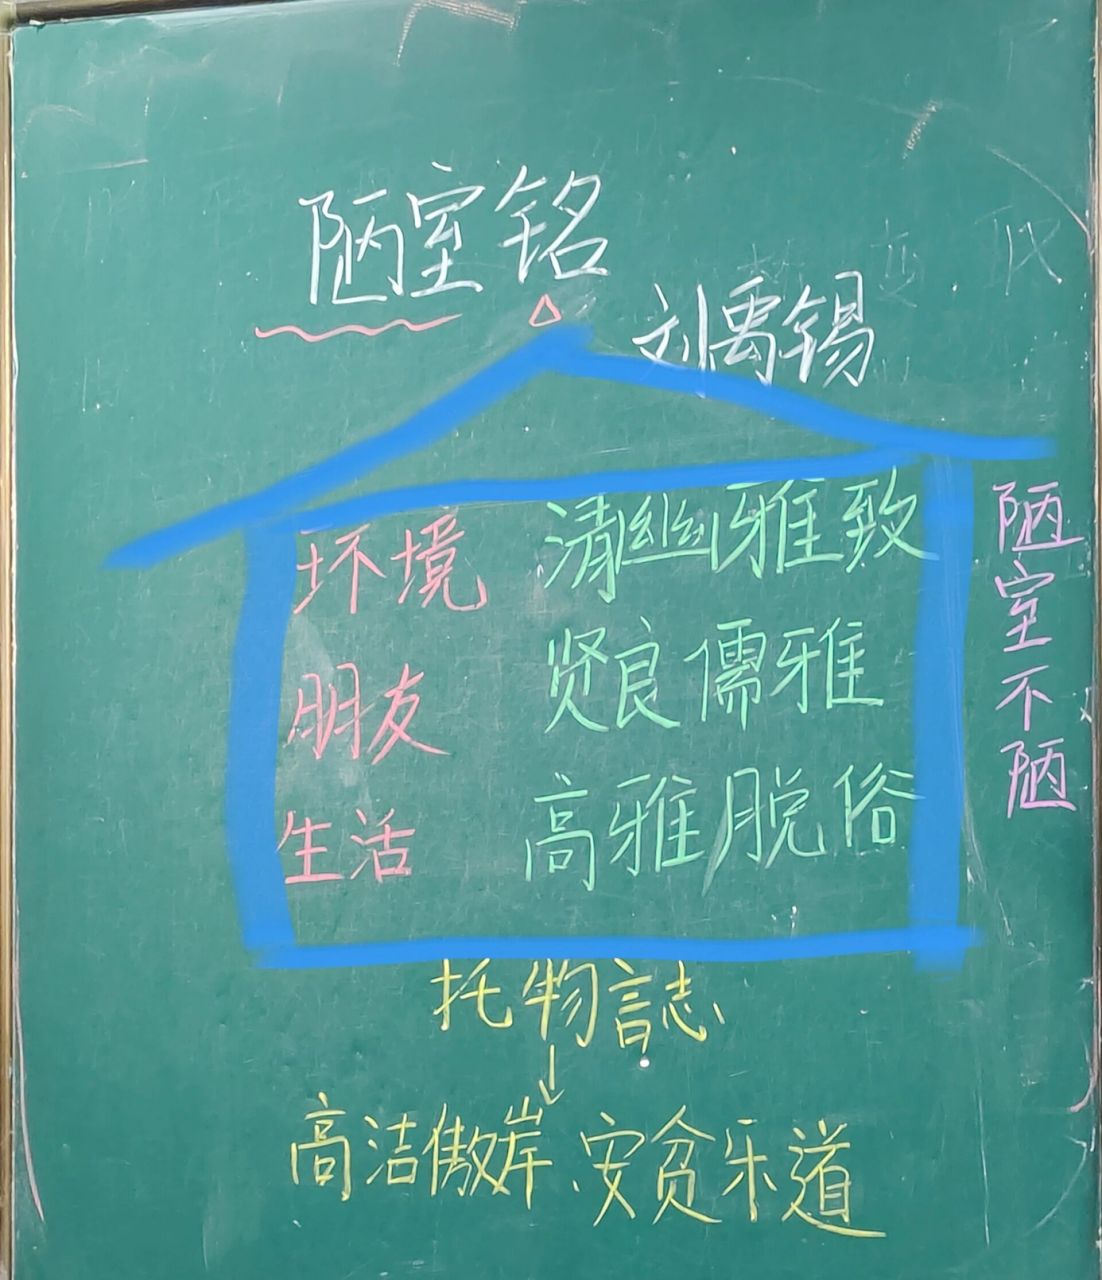 陋室铭
刘禹锡
环境 清幽雅致
朋友 贤良儒雅
生活 高雅脱俗
陋室不陋
托物言志
↓
高洁傲岸、安贫乐道